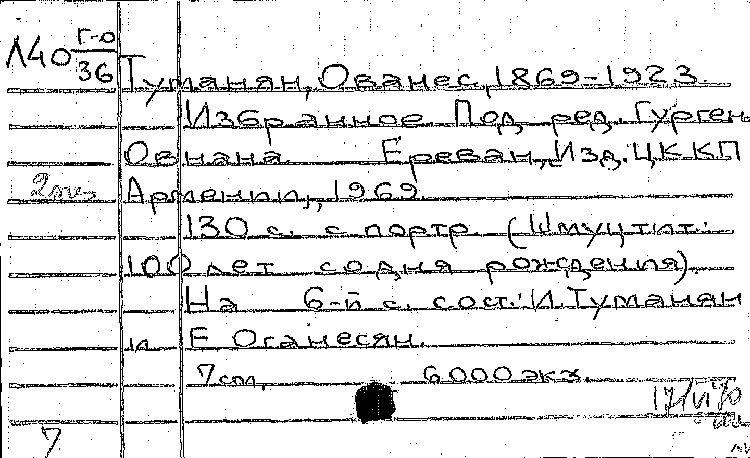 Л40 Г-0
36
Туманян, Ованес, 1869-1923.
Избранное. Под ред. Гурген
Овнана. Ереван, Изд. ЦК КП
Армении, 1969.
130 с. с портр. (Шмуцтит.:
100 лет со дня рождения).
На 6-й с. сост.: И. Туманян
и Е. Оганесян.
7 6000 экз.
17/VI 70
7